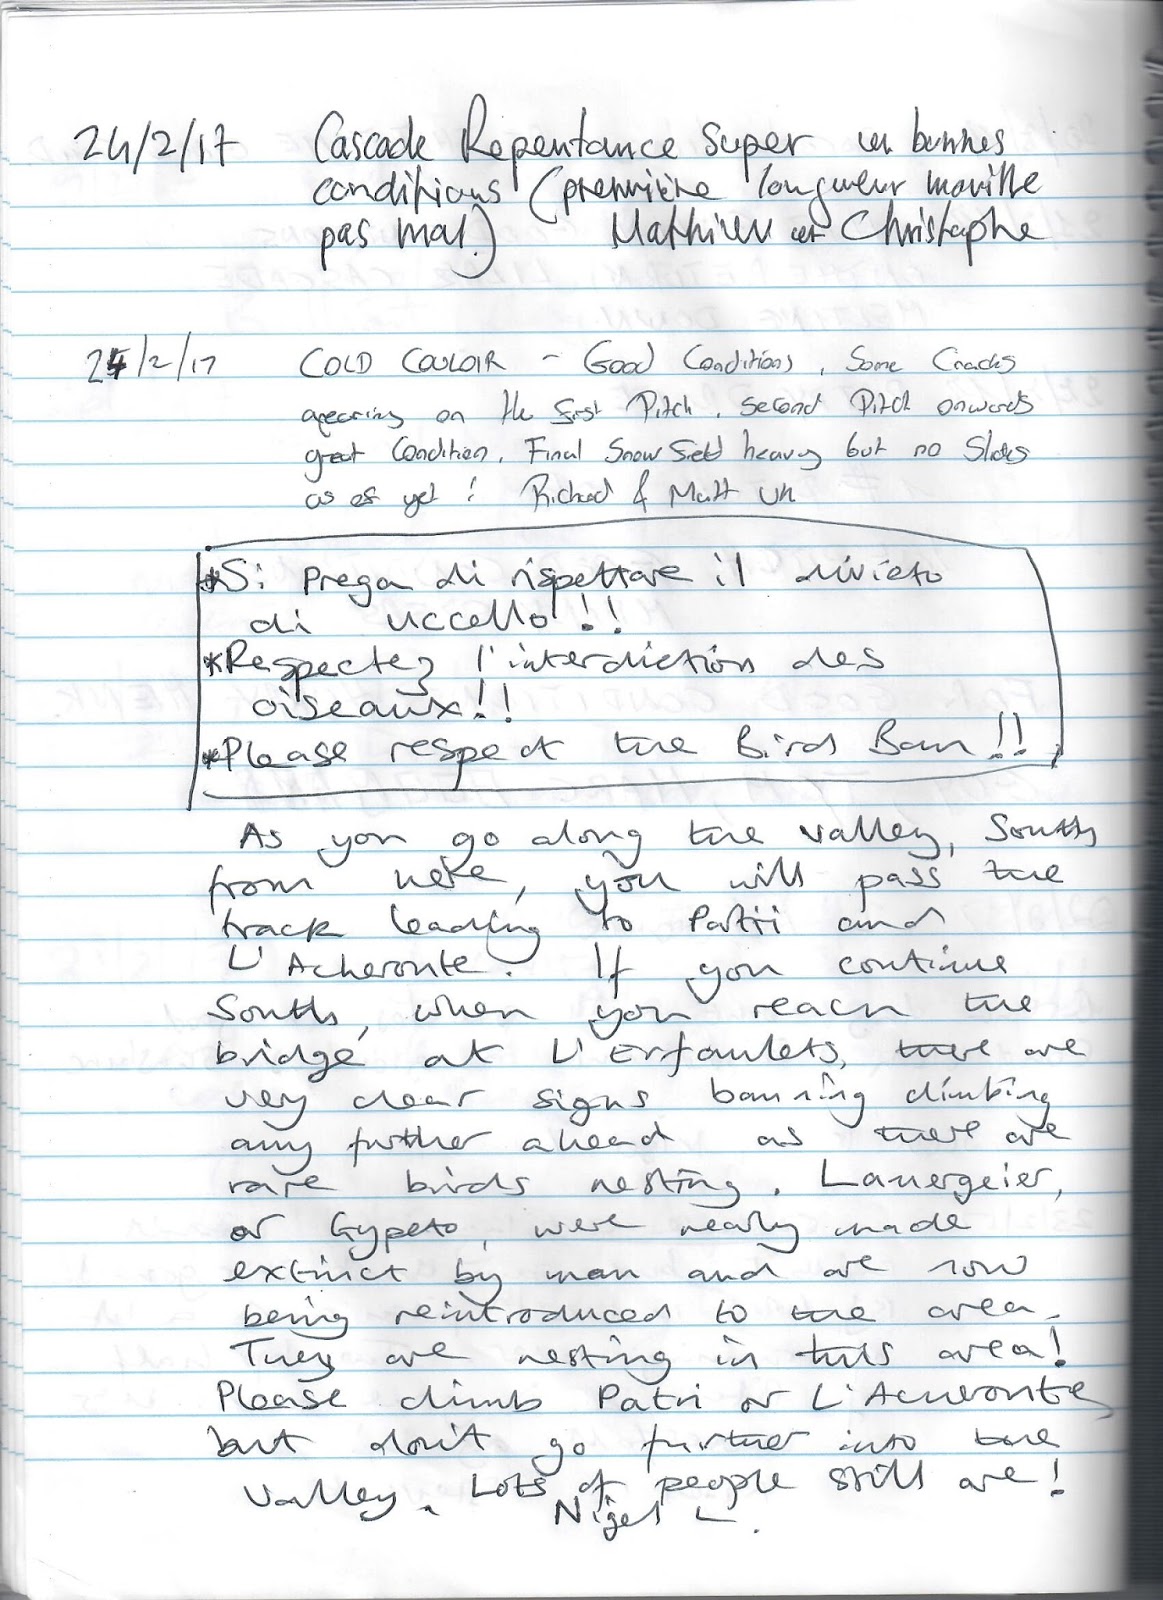 24/2/17 Cascade Repentance Super en bonnes
conditions (première longueur mouille
pas mal.) Matthieu et Christophe
24/2/17 COLD COULOIR - Good Conditions, Some Cracks
apearing on the first Pitch. Second Pitch onwards
great Condition. Final Snow Field heavy but no Slides
as of yet! Richard & Matt UK
*Si prega di rispettare il divieto
di uccello!!!
*Respectez l'interdiction des
oiseaux!!
*Please respect the Bird Ban!!
As you go along the valley, South
from here, you will pass the
track leading to Patri and
L'Acheronte. If you continue
South, when you reach the
bridge at L'Erfaulets, there are
very clear signs banning climbing
any further ahead as there are
rare birds nesting. Lamergeier,
or Gypeto, were nearly made
extinct by man and are now
being reintroduced to the area.
They are nesting in this area!
Please climb Patri or L'Acheronte
but don't go further into the
valley. Lots of people still are!
Nigel